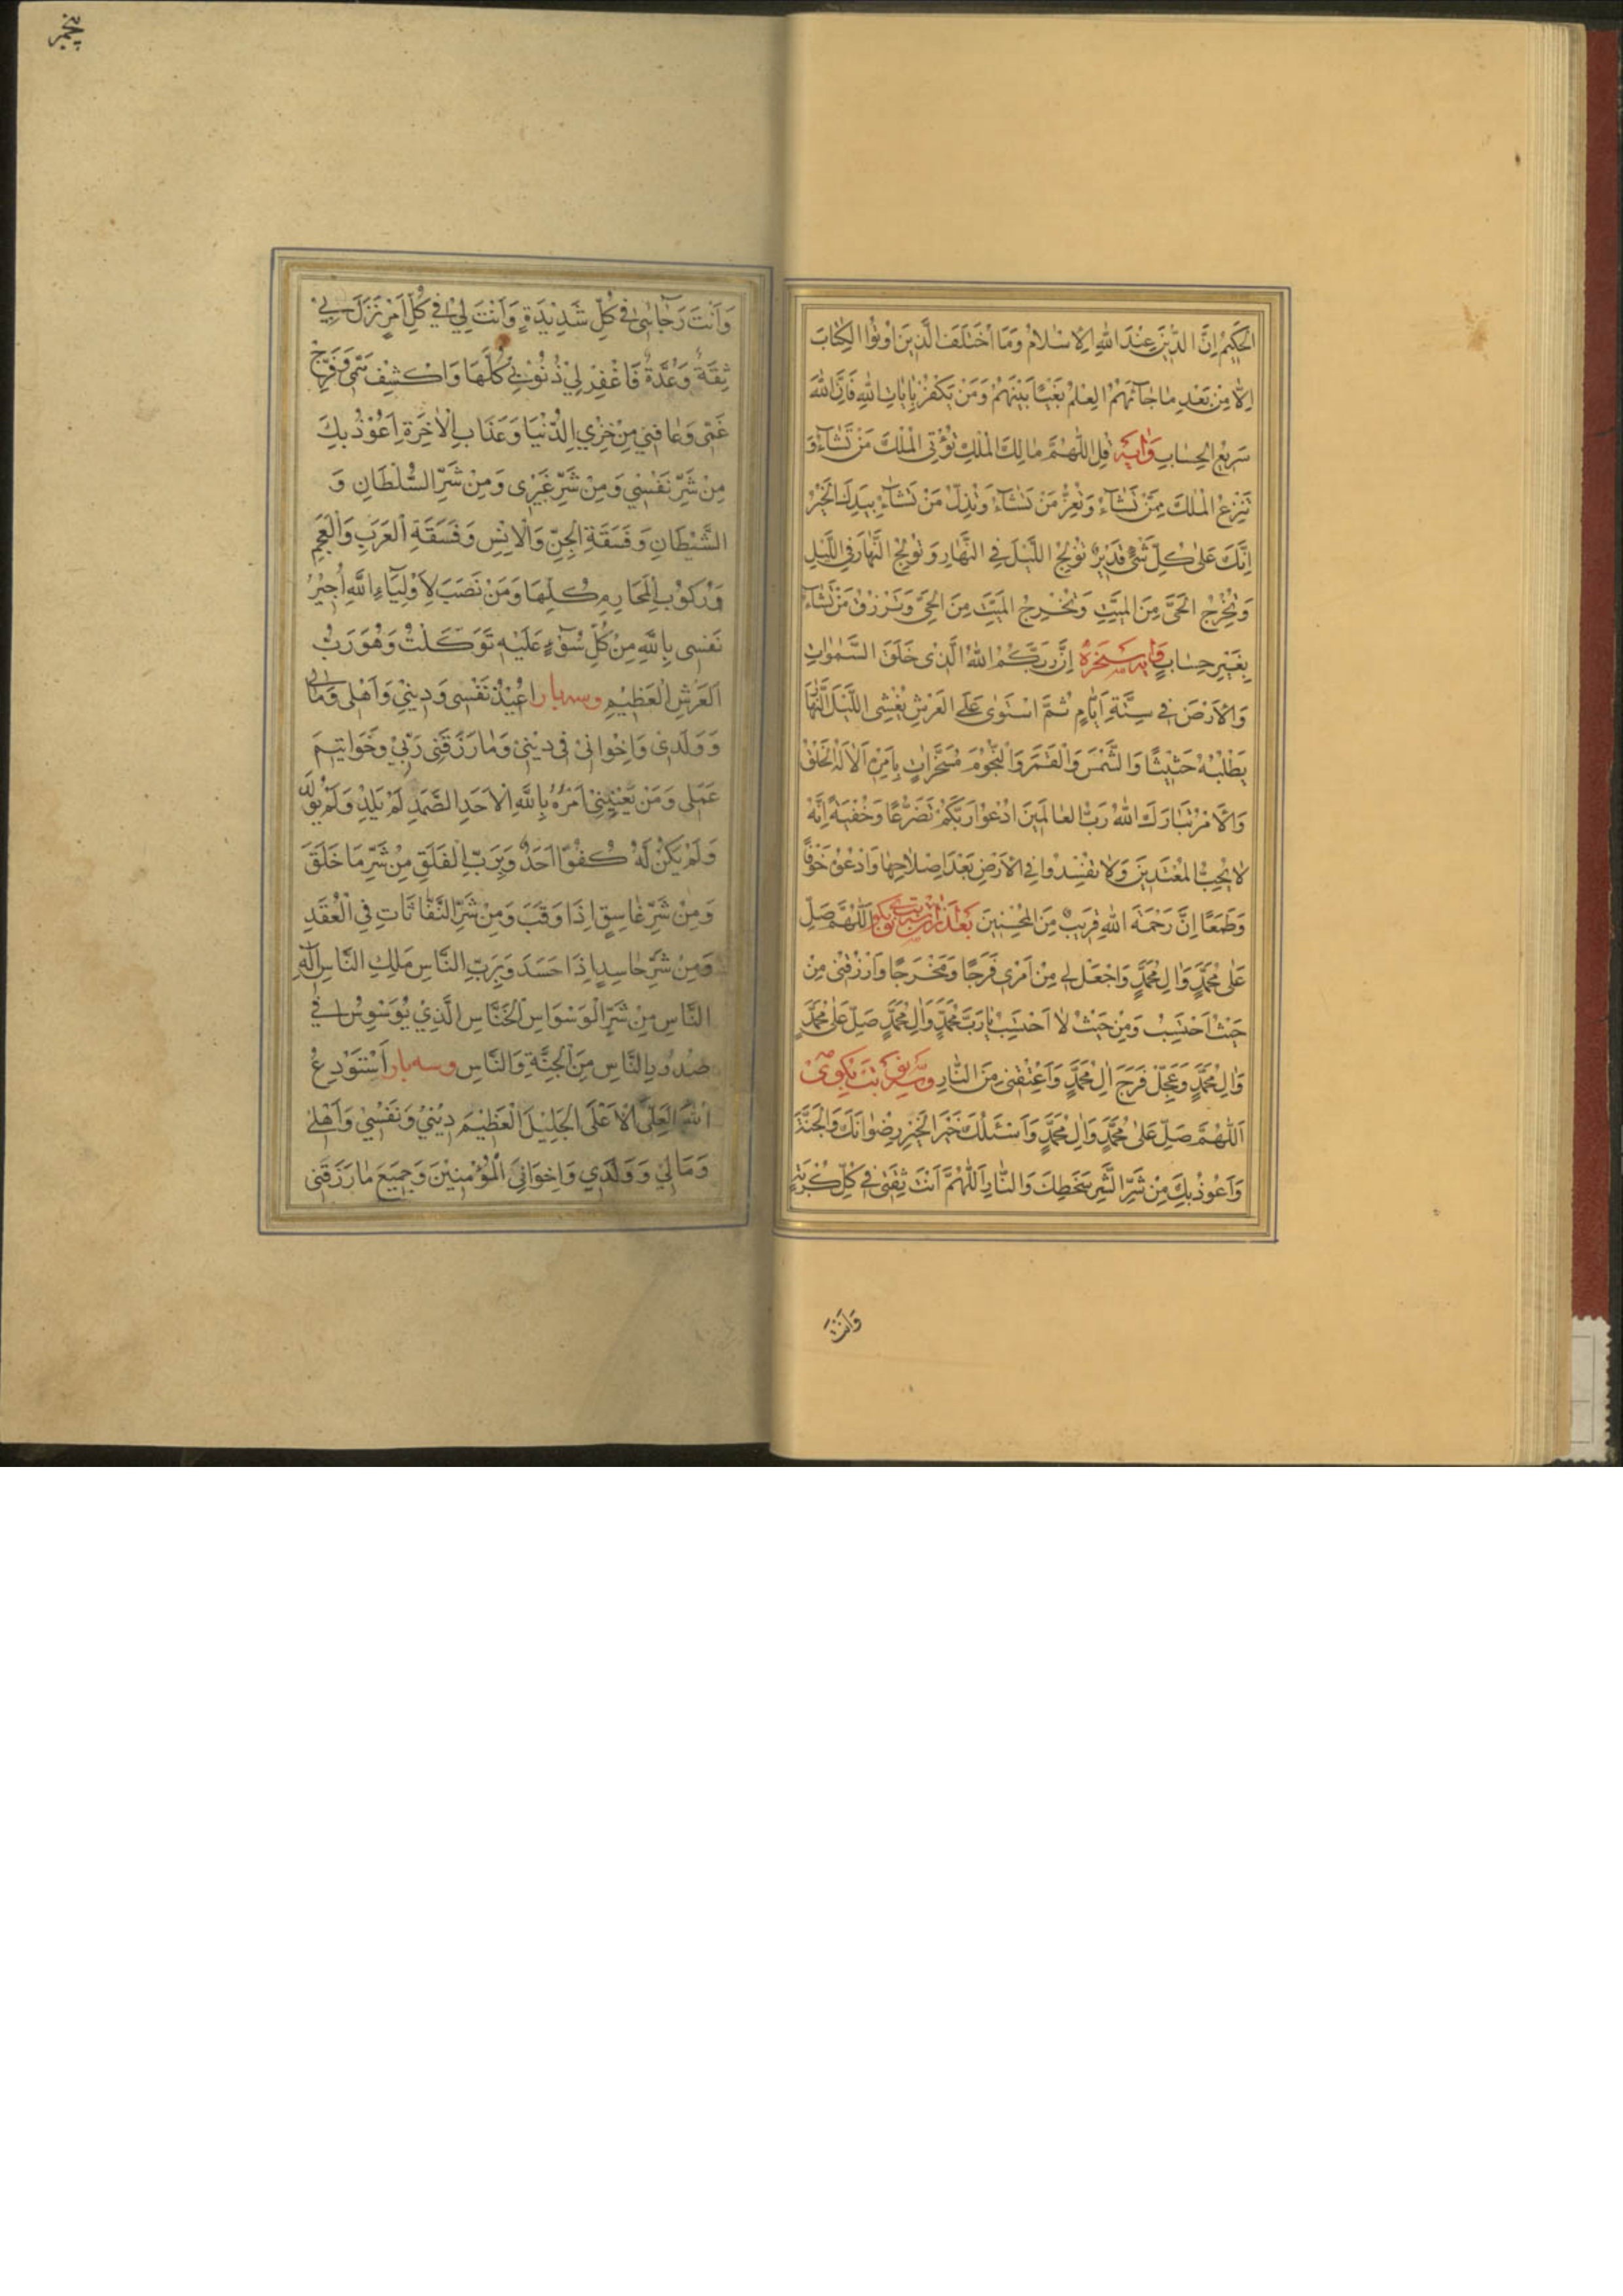 الْحَكِيمُ اِنَّ الدّينَ عِنْدَ اللّٰهِ الْاِسْلامُ وَمَا اخْتَلَفَ الَّذينَ اُوتُوا الْكِتابَ
اِلّا مِنْ بَعْدِ ماجآءَهُمُ الْعِلْمُ بَغْيًا بَيْنَهُمْ وَمَنْ يَكْفُرْ بِاٰياتِ اللّٰهِ فَاِنَّ اللّٰهَ
سَرِيعُ الْحِسابِ وَايَه قُلِ اللّٰهُمَّ مالِكَ الْمُلْكِ تُؤْتِى الْمُلْكَ مَنْ تَشآءُ وَ
تَنْزِعُ الْمُلْكَ مِمَّنْ تَشآءُ وَتُعِزُّ مَنْ تَشآءُ وَتُذِلُّ مَنْ تَشآءُ بِيَدِكَ الْخَيْرُ
اِنَّكَ عَلىٰ كُلِّ شَىْءٍ قَدِيرٌ تُولِجُ اللَّيْلَ فِى النَّهارِ وَتُولِجُ النَّهارَ فِى اللَّيْلِ
وَتُخْرِجُ الْحَىَّ مِنَ الْمَيِّتِ وَتُخْرِجُ الْمَيِّتَ مِنَ الْحَىِّ وَتَرْزُقُ مَنْ تَشآءُ
بِغَيْرِ حِسابٍ وايه سخره اِنَّ رَبَّكُمُ اللّٰهُ الَّذى خَلَقَ السَّمٰواتِ
وَالْاَرْضَ فى سِتَّةِ اَيّامٍ ثُمَّ اسْتَوىٰ عَلَى الْعَرْشِ يُغْشِى اللَّيْلَ النَّهارَ
يَطْلُبُهُ حَثيثًا وَالشَّمْسَ وَالْقَمَرَ وَالنُّجُومَ مُسَخَّراتٍ بِاَمْرِهِ اَلا لَهُ الْخَلْقُ
وَالْاَمْرُ تَبارَكَ اللّٰهُ رَبُّ الْعالَمينَ ادْعُوا رَبَّكُمْ تَضَرُّعًا وَخُفْيَةً اِنَّهُ
لا يُحِبُّ الْمُعْتَدينَ وَلا تُفْسِدُوا فِى الْاَرْضِ بَعْدَ اِصْلاحِها وَادْعُوهُ خَوْفًا
وَطَمَعًا اِنَّ رَحْمَةَ اللّٰهِ قَريبٌ مِنَ الْمُحْسِنينَ بعد ازان بگو اَللّٰهُمَّ صَلِّ
عَلىٰ مُحَمَّدٍ وَالِ مُحَمَّدٍ وَاجْعَلْ لى مِنْ اَمْرى فَرَجًا وَمَخْرَجًا وَارْزُقْنى مِنْ
حَيْثُ اَحْتَسِبُ وَمِنْ حَيْثُ لا اَحْتَسِبُ يا رَبَّ مُحَمَّدٍ وَالِ مُحَمَّدٍ صَلِّ عَلىٰ مُحَمَّدٍ
وَالِ مُحَمَّدٍ وَعَجِّلْ فَرَجَ الِ مُحَمَّدٍ وَاَعْتِقْنى مِنَ النّارِ
اَللّٰهُمَّ صَلِّ عَلىٰ مُحَمَّدٍ وَالِ مُحَمَّدٍ وَاَسْئَلُكَ خَيْرَ الْخَيْرِ رِضْوانَكَ وَالْجَنَّةَ
وَاَعُوذُ بِكَ مِنْ شَرِّ الشَّرِّ سَخَطِكَ وَالنّارِ اَللّٰهُمَّ اَنْتَ ثِقَتى فى كُلِّ كُرْبَةٍ
وَاَنْتَ
وَاَنْتَ رَجآئى فى كُلِّ شَدِيْدَةٍ وَاَنْتَ لِىْ فى كُلِّ اَمْرٍ نَزَلَ بِىْ
ثِقَةٌ وَعُدَّةٌ فَاغْفِرْ لِىْ ذُنُوْبِىْ كُلَّهَا وَاكْشِفْ هَمّى وَفَرِّجْ
غَمّى وَعافِنِى مِنْ خِزْىِ الدُّنْيَا وَعَذَابِ الْاٰخِرَةِ اَعُوْذُ بِكَ
مِنْ شَرِّ نَفْسِىْ وَمِنْ شَرِّ غَيْرِى وَمِنْ شَرِّ السُّلْطَانِ وَ
الشَّيْطَانِ وَفَسَقَةِ الْجِنِّ وَالْاِنْسِ وَفَسَقَةِ الْعَرَبِ وَالْعَجَمِ
وَرُكُوْبِ الْمَحَارِمِ كُلِّهَا وَمَنْ نَصَبَ لِاَوْلِيَآءِ اللّٰهِ اُجِيْرُ
نَفْسى بِاللّٰهِ مِنْ كُلِّ سُوْءٍ عَلَيْهِ تَوَكَّلْتُ وَهُوَ رَبُّ
الْعَرْشِ الْعَظِيْمِ وسه بار اُعِيْذُ نَفْسى وَدِيْنِىْ وَاَهْلى وَمالى
وَوَلَدىْ وَاِخْوانِىْ فى دِيْنِىْ وَمارَزَقَنى رَبّىْ وَخَواتِيْمَ
عَمَلى وَمَنْ يَعْنِيْنِىْ اَمْرُهُ بِاللّٰهِ الْاَحَدِ الصَّمَدِ لَمْ يَلِدْ وَلَمْ يُوْلَدْ
وَلَمْ يَكُنْ لَهُ كُفُوًا اَحَدٌ وَبِرَبِّ الْفَلَقِ مِنْ شَرِّ مَا خَلَقَ
وَمِنْ شَرِّ غَاسِقٍ اِذَا وَقَبَ وَمِنْ شَرِّ النَّفّاثَاتِ فِى الْعُقَدِ
وَمِنْ شَرِّ حَاسِدٍ اِذَا حَسَدَ وَبِرَبِّ النَّاسِ مَلِكِ النَّاسِ اِلٰهِ
النَّاسِ مِنْ شَرِّ الْوَسْوَاسِ الْخَنَّاسِ الَّذِىْ يُوَسْوِسُ فى
صُدُوْرِ النَّاسِ مِنَ الْجِنَّةِ وَالنَّاسِ وسه بار اَسْتَوْدِعُ
اللّٰهَ الْعَلِىَّ الْاَعْلَى الْجَلِيْلَ الْعَظِيْمَ دِيْنِىْ وَنَفْسِىْ وَاَهْلِى
وَمَالِىْ وَوَلَدِى وَاِخْوَانِىَ الْمُؤْمِنِيْنَ وَجَمِيْعَ مَا رَزَقَنى